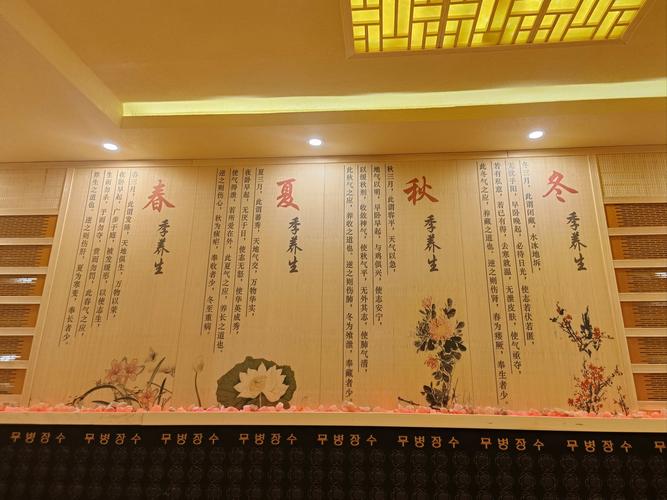 春
季养生
春三月，此谓发陈，天地俱生，万物以荣，
夜卧早起，广步于庭，被发缓形，以使志生，
生而勿杀，予而勿夺，赏而勿罚，此春气之应，
养生之道也，逆之则伤肝，夏为寒变，奉长者少。
夏
季养生
夏三月，此谓蕃秀，天地气交，万物华实，
夜卧早起，无厌于日，使志无怒，使华英成秀，
使气得泄，若所爱在外，此夏气之应，养长之道也，
逆之则伤心，秋为痎疟，奉收者少，冬至重病。
秋
季养生
秋三月，此谓容平，天气以急，
地气以明，早卧早起，与鸡俱兴，使志安宁，
以缓秋刑，收敛神气，使秋气平，无外其志，使肺气清，
此秋气之应，养收之道也，逆之则伤肺，冬为飧泄，奉藏者少。
冬
季养生
冬三月，此谓闭藏，水冰地坼，
无扰乎阳，早卧晚起，必待日光，使志若伏若匿，
若有私意，若已有得，去寒就温，无泄皮肤，使气亟夺，
此冬气之应，养藏之道也，逆之则伤肾，春为痿厥，奉生者少。
무병장수 무병장수 무병장수 무병장수 무병장수 무병장수 무병장수 무병장수 무병